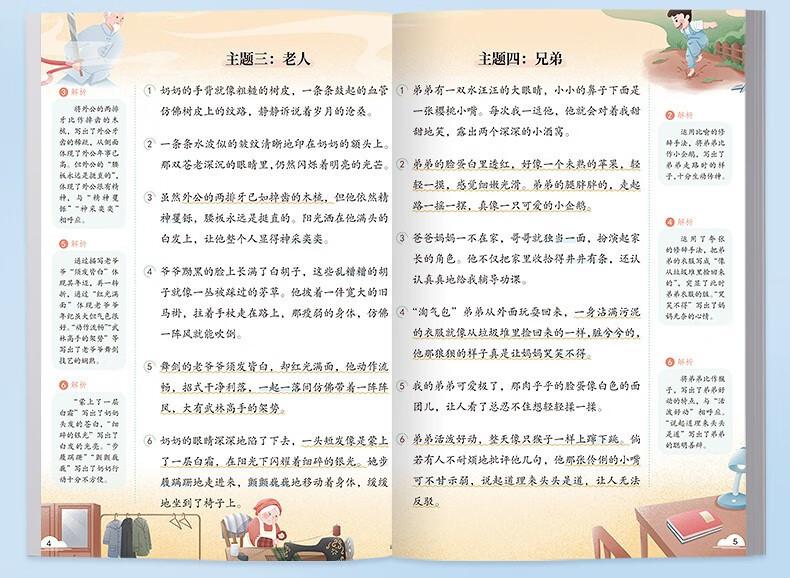 主题三：老人
③ 解析
将外公的两排
牙比作掉齿的木
梳，写出了外公牙
齿的稀疏，从侧面
体现了外公年事已
高。但外公的“腰
板永远是挺直的”，
体现了外公很有精
神，与“精神矍
铄”“神采奕奕”
相呼应。
⑤ 解析
通过描写老爷
爷“须发皆白”体
现其年迈，再一转
折，通过“红光满
面”体现老爷爷
年纪虽大但气色很
好。“动作流畅”“武
林高手的架势”等
写出了老爷爷舞剑
技艺的娴熟。
⑥ 解析
“蒙上了一层
白霜”写出了奶奶
头发的苍白，“细
碎的银光”写出了
白发的光亮。“步
履蹒跚”“颤颤巍
巍”写出了奶奶行
动十分不方便。
① 奶奶的手背就像粗糙的树皮，一条条鼓起的血管
仿佛树皮上的纹路，静静诉说着岁月的沧桑。
② 一条条水波似的皱纹清晰地印在奶奶的额头上。
那双苍老深沉的眼睛里，仍然闪烁着明亮的光芒。
③ 虽然外公的两排牙已如掉齿的木梳，但他依然精
神矍铄，腰板永远是挺直的。阳光洒在他满头的
白发上，让他整个人显得神采奕奕。
④ 爷爷黝黑的脸上长满了白胡子，这些乱糟糟的胡
子就像一丛被踩过的茅草。他披着一件宽大的旧
马褂，拄着手杖走在路上，那瘦弱的身体，仿佛
一阵风就能吹倒。
⑤ 舞剑的老爷爷须发皆白，却红光满面，他动作流
畅，招式干净利落，一起一落间仿佛带着一阵阵
风，大有武林高手的架势。
⑥ 奶奶的眼睛深深地陷了下去，一头短发像是蒙上
了一层白霜，在阳光下闪耀着细碎的银光。她步
履蹒跚地走进来，颤颤巍巍地移动着身体，缓缓
地坐到了椅子上。
4
主题四：兄弟
① 弟弟有一双水汪汪的大眼睛，小小的鼻子下面是
一张樱桃小嘴。每次我一逗他，他就会对着我甜
甜地笑，露出两个深深的小酒窝。
② 弟弟的脸蛋白里透红，好像一个未熟的苹果，轻
轻一摸，感觉细嫩光滑。弟弟的腿胖胖的，走起
路一摇一摆，真像一只可爱的小企鹅。
③ 爸爸妈妈一不在家，哥哥就独当一面，扮演起家
长的角色。他不仅把家里收拾得井井有条，还认
认真真地给我辅导功课。
④ “淘气包”弟弟从外面玩耍回来，一身沾满污泥
的衣服就像从垃圾堆里捡回来的一样，脏兮兮的，
他那狼狈的样子真是让妈妈哭笑不得。
⑤ 我的弟弟可爱极了，那肉乎乎的脸蛋像白色的面
团儿，让人看了总忍不住想轻轻揉一揉。
⑥ 弟弟活泼好动，整天像只猴子一样上蹿下跳。倘
若有人不耐烦地批评他几句，他那张伶俐的小嘴
可不甘示弱，说起道理来头头是道，让人无法
反驳。
② 解析
运用比喻的修
辞手法，将弟弟比
作小企鹅，写出了
弟弟走路时的样
子，十分生动传神。
④ 解析
运用了夸张
的修辞手法，把弟
弟的衣服写成“像
从垃圾堆里捡回来
的”，突显了此时
弟弟衣服的脏。“哭
笑不得”写出了妈
妈无奈的心情。
⑥ 解析
将弟弟比作猴
子，写出了弟弟好
动的特点，与“活
泼好动”相呼应。
“说起道理来头头
是道”写出了弟弟
的聪明善辩。
5